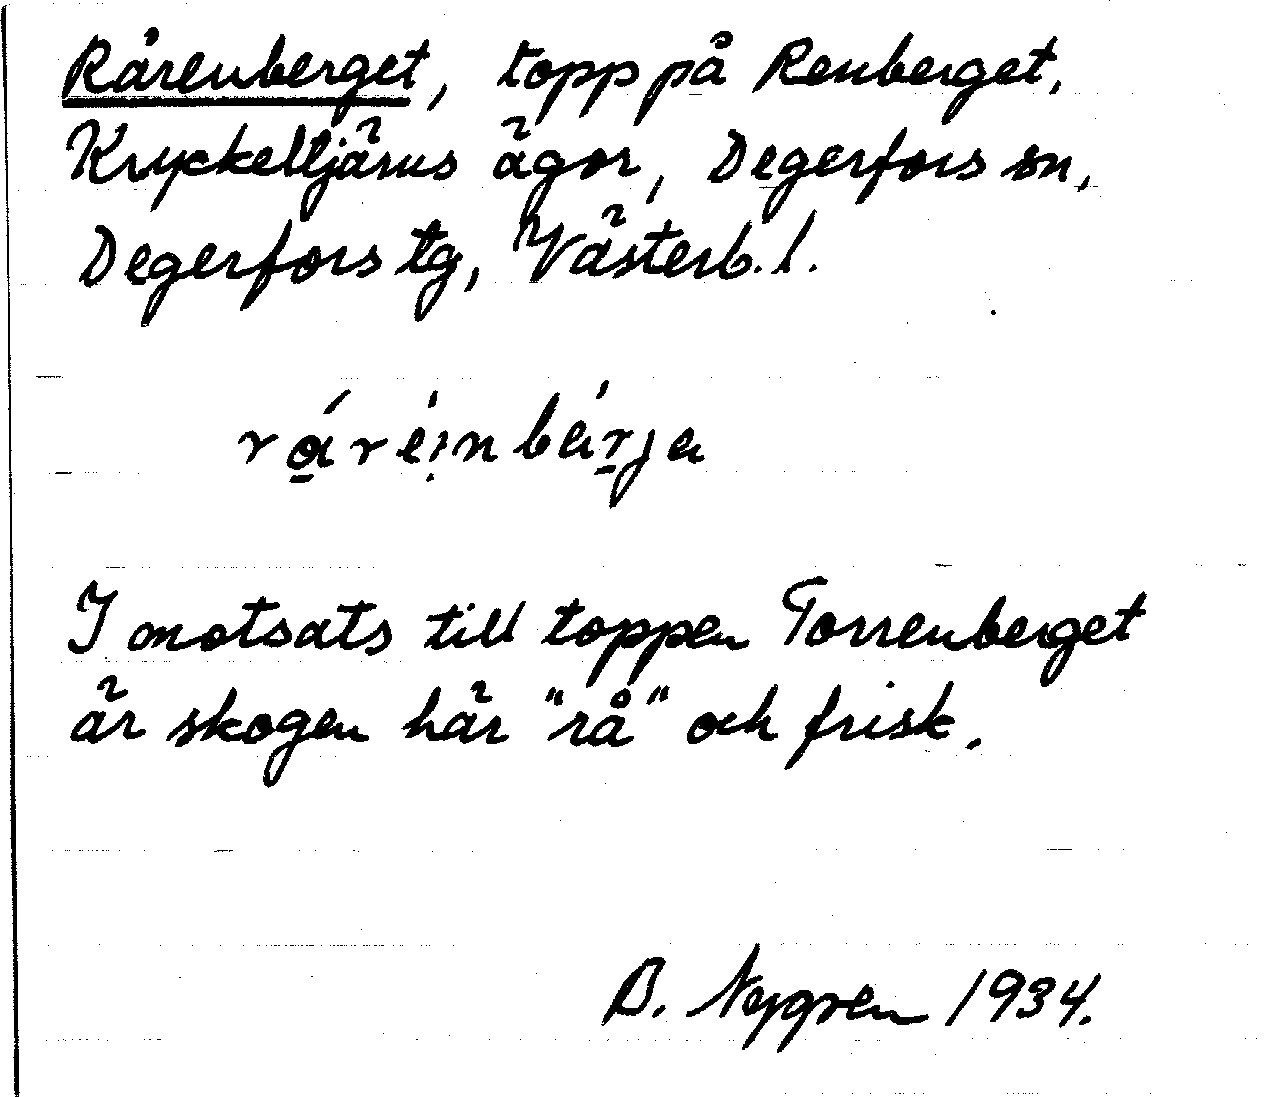 Rårenberget, topp på Renberget,
Kryckeltjärns ägor, Degerfors sn,
Degerfors tg, Västerb. l.
I motsats till toppen Torrenberget
är skogen här "rå" och frisk.
B. Nygren 1934.